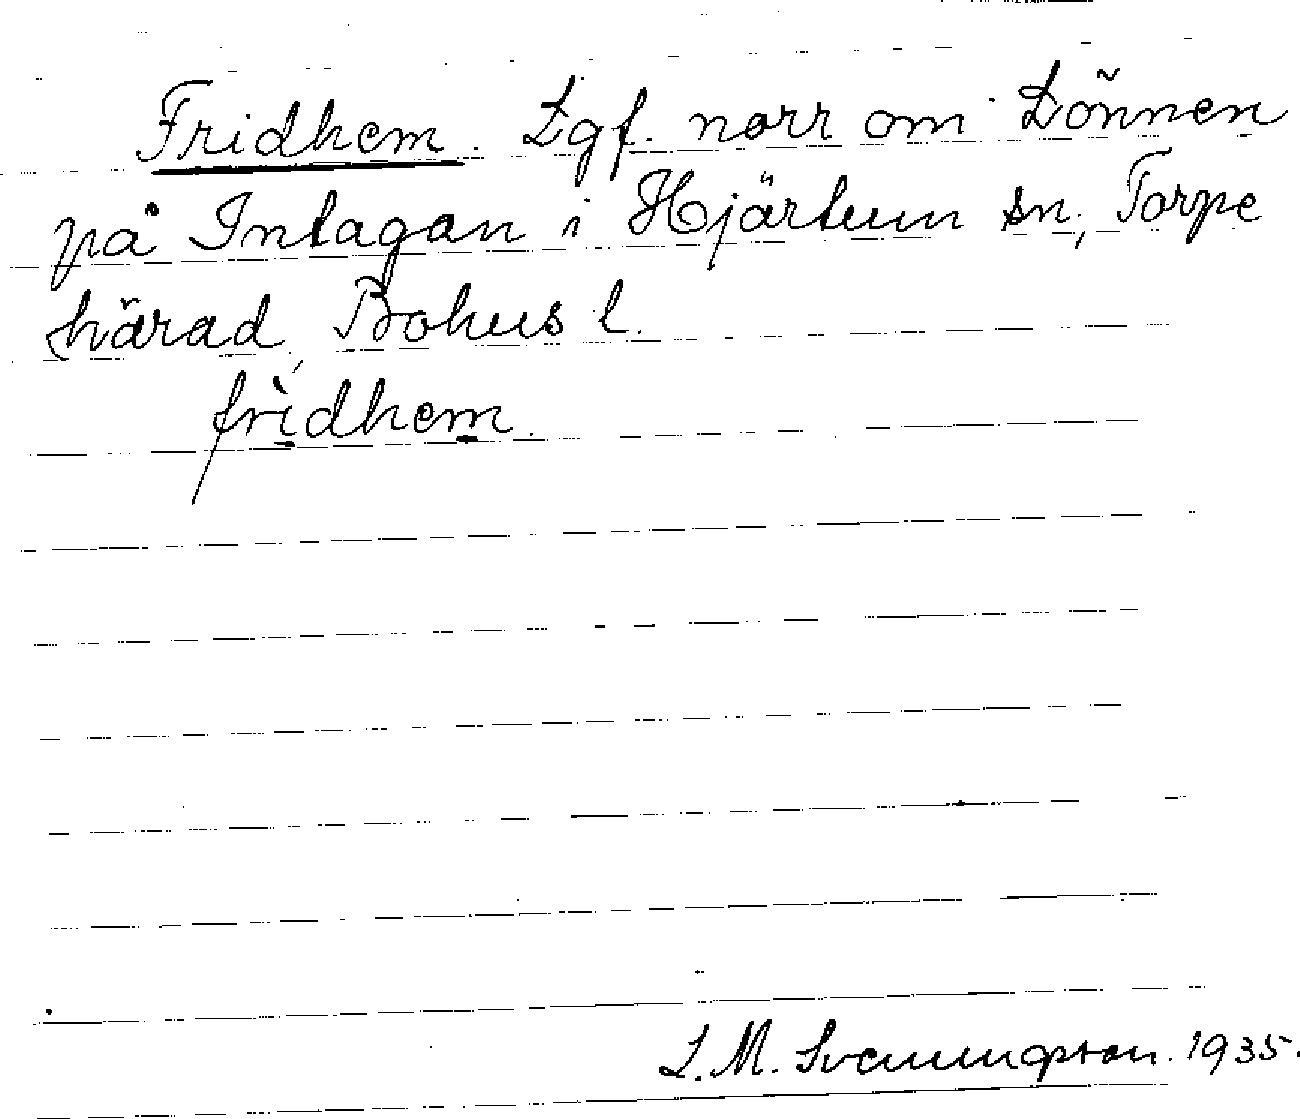 Fridhem. Lgf. norr om Lönnen
på Intagan i Hjärtum sn, Torpe
härad, Bohus l.
frìdhem.
L. M. Svenungsson. 1935.